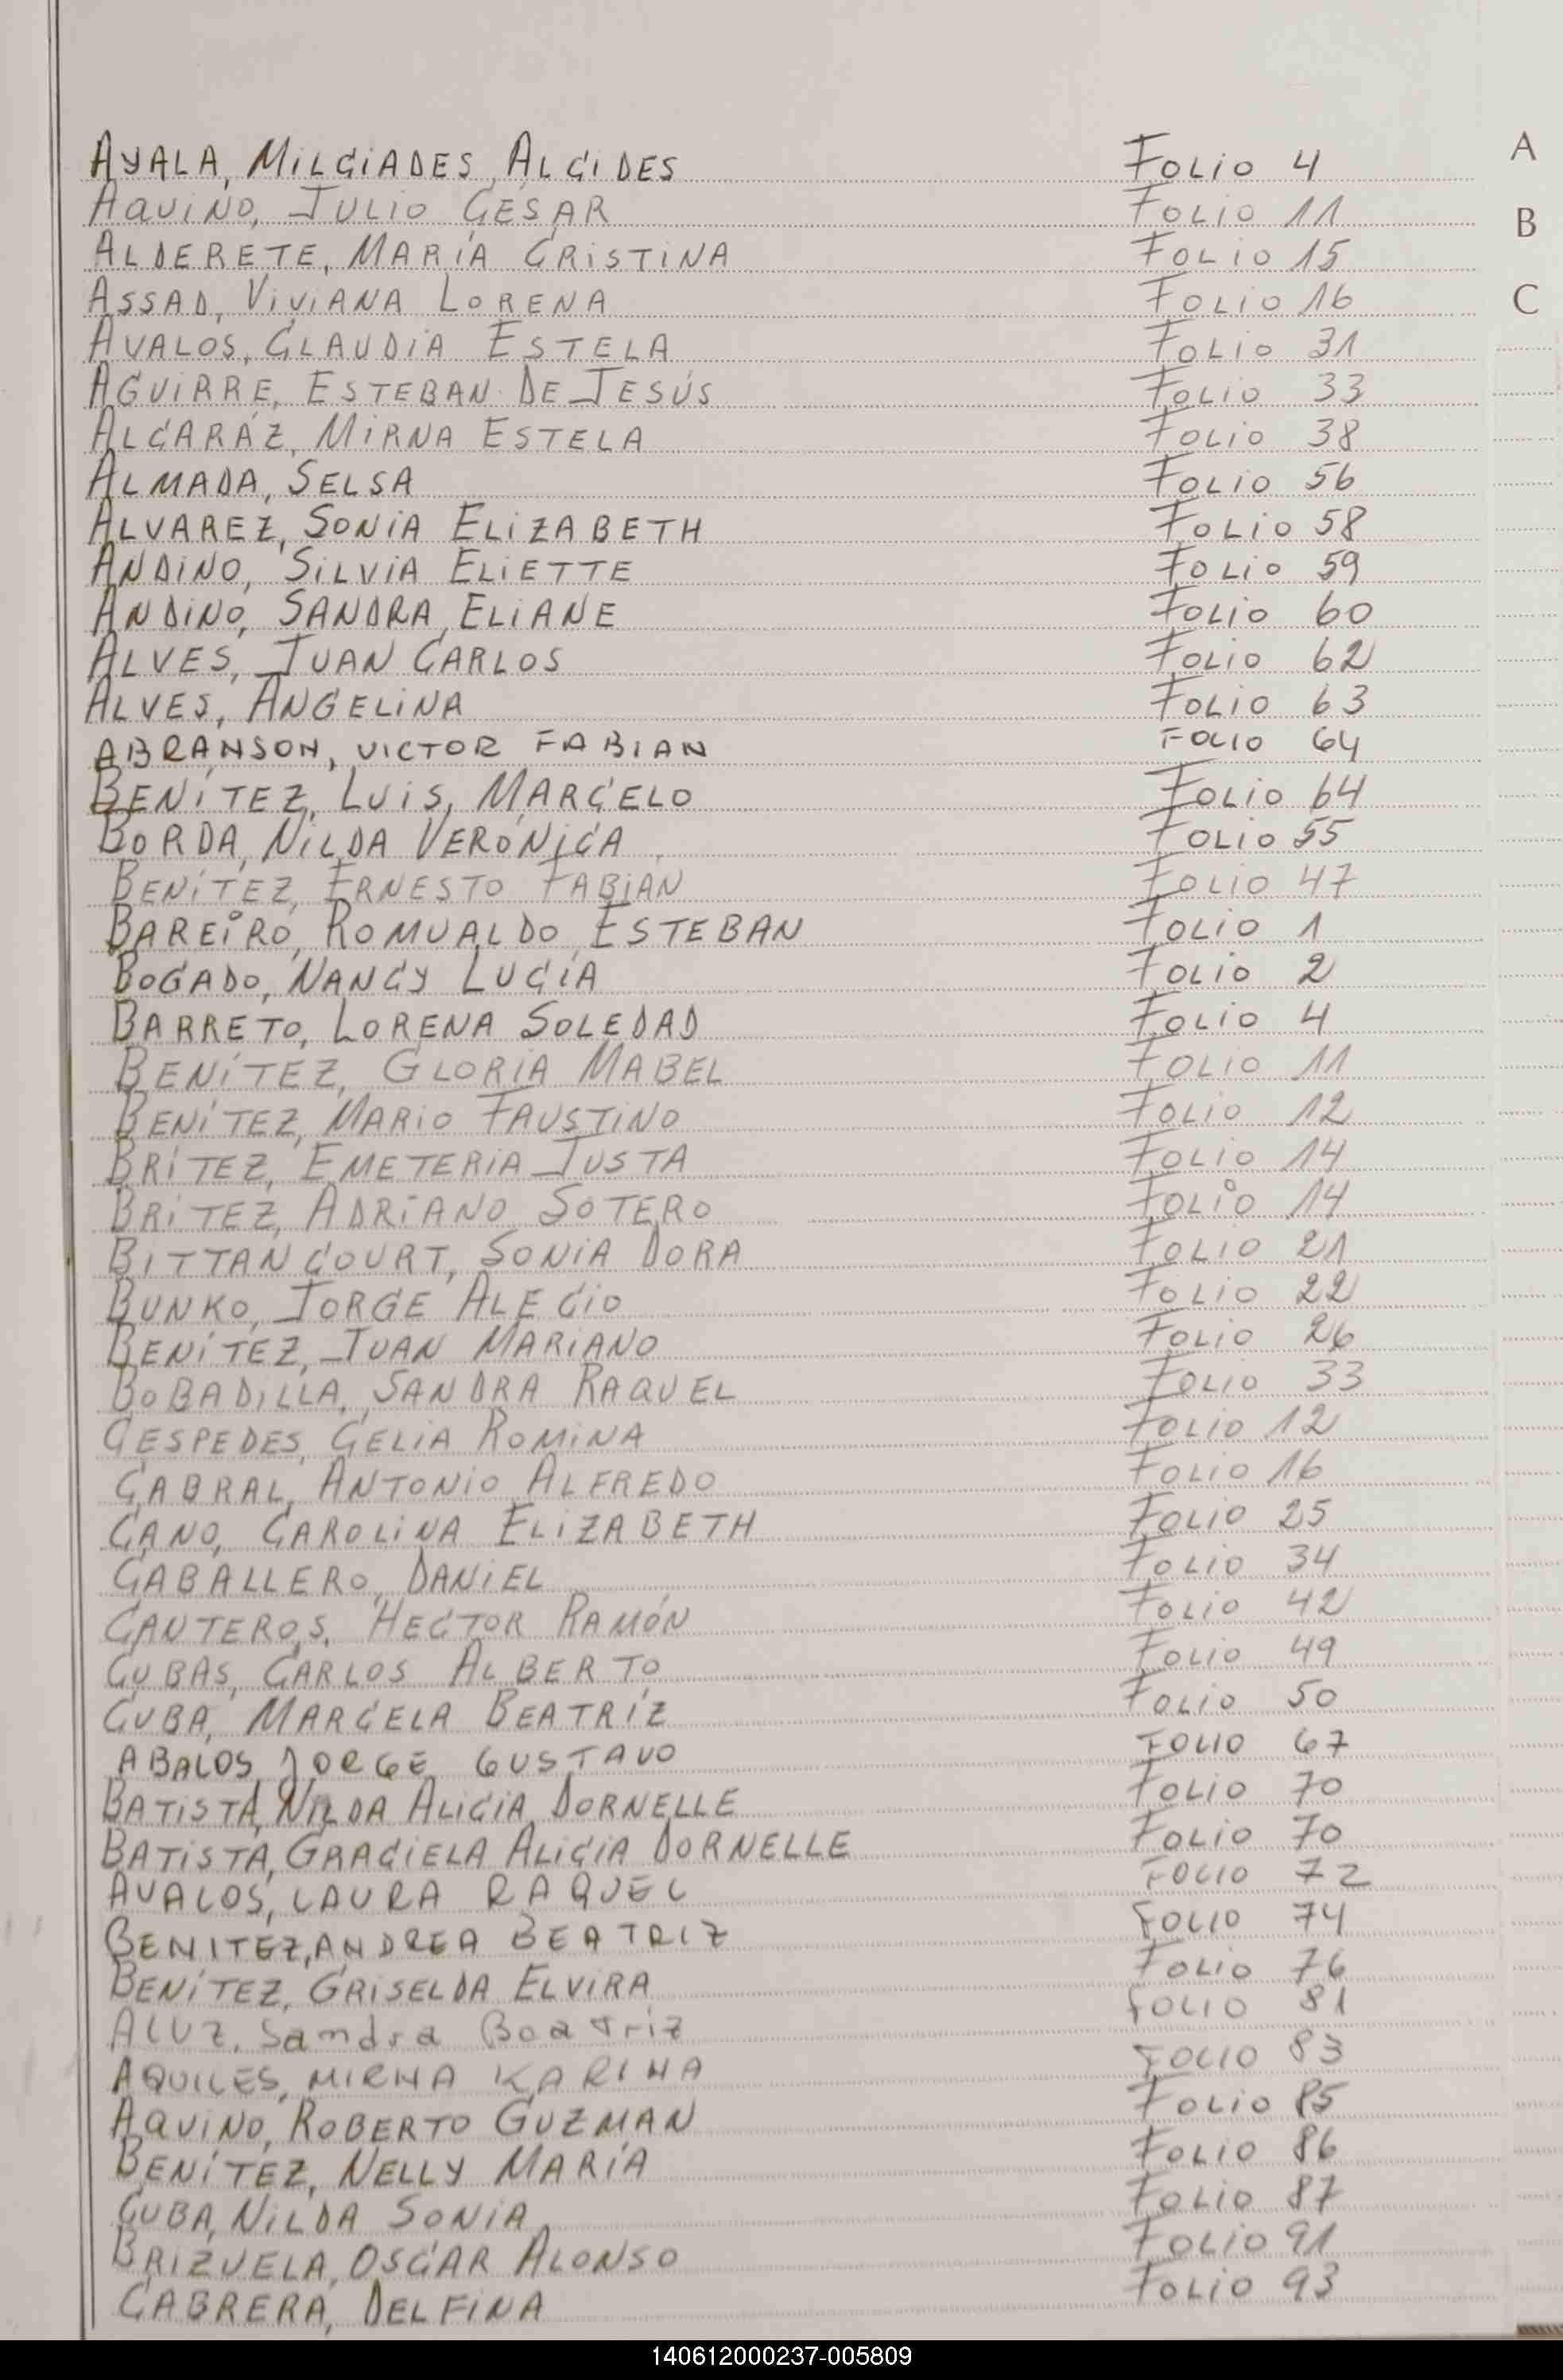 AYALA, MILCIADES ALCIDES Folio 4
AQUINO, JULIO CESAR Folio 11
ALDERETE, MARÍA CRISTINA Folio 15
ASSAD, VIVIANA LORENA Folio 16
AVALOS, CLAUDIA ESTELA Folio 31
AGUIRRE, ESTEBAN DE JESÚS Folio 33
ALCARÁZ, MIRNA ESTELA Folio 38
ALMADA, SELSA Folio 56
ALVAREZ, SONIA ELIZABETH Folio 58
ANDINO, SILVIA ELIETTE Folio 59
ANDINO, SANDRA ELIANE Folio 60
ALVES, JUAN CARLOS Folio 62
ALVES, ANGELINA Folio 63
ABRANSON, VICTOR FABIAN FOLIO 64
BENÍTEZ, LUIS, MARCELO Folio 64
BORDA, NILDA VERÓNICA Folio 55
BENÍTEZ, ERNESTO FABIÁN Folio 47
BAREIRO, ROMUALDO ESTEBAN Folio 1
BOGADO, NANCY LUCÍA Folio 2
BARRETO, LORENA SOLEDAD Folio 4
BENÍTEZ, GLORIA MABEL Folio 11
BENÍTEZ, MARIO FAUSTINO Folio 12
BRÍTEZ, EMETERIA JUSTA Folio 14
BRÍTEZ, ADRIANO SOTERO Folio 14
BITTANCOURT, SONIA DORA Folio 21
BUNKO, JORGE ALECIO Folio 22
BENÍTEZ, JUAN MARIANO Folio 26
BOBADILLA, SANDRA RAQUEL Folio 33
CESPEDES, CELIA ROMINA Folio 12
CABRAL, ANTONIO ALFREDO Folio 16
CANO, CAROLINA ELIZABETH Folio 25
CABALLERO, DANIEL Folio 34
CANTEROS, HECTOR RAMÓN Folio 42
CUBAS, CARLOS ALBERTO Folio 49
CUBA, MARCELA BEATRÍZ Folio 50
ABALOS JORGE GUSTAVO FOLIO 67
BATISTA, NILDA ALICIA DORNELLE Folio 70
BATISTA, GRACIELA ALICIA DORNELLE Folio 70
AVALOS, LAURA RAQUEL FOLIO 72
BENITEZ, ANDREA BEATRIZ FOLIO 74
BENÍTEZ, GRISELDA ELVIRA Folio 76
ALUZ, Sandra Beatriz FOLIO 81
AQUILES, MIRNA KARINA FOLIO 83
AQUINO, ROBERTO GUZMAN Folio 85
BENÍTEZ, NELLY MARÍA Folio 86
CUBA, NILDA SONIA Folio 87
BRIZUELA, OSCAR ALONSO Folio 91
CABRERA, DELFINA Folio 93
A
B
C
140612000237-005809